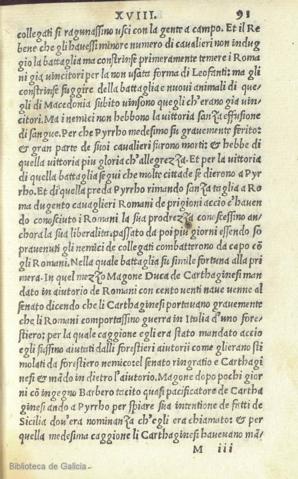 XVIII. 91
collegati si ragunassino usci con la gente a campo. Et il Re
bene che gli havessi minor numero di cavalieri non indug
gio la battaglia ma constrinse primeramente temere i Roma
ni gia vincitori per la non usata forma di Leofanti: ma gli
constrinse fuggire della battaglia e nuovi animali di que
gli di Macedonia subito vinsono quegli ch'erano gia vin
citori. Ma i nemici non hebbono la vittoria sanza effusione
di sangue. Per che Pyrrho medesimo fu gravemente ferito:
& gran parte de suoi cavalieri furono morti: & hebbe di
quella vittoria piu gloria ch'allegrezza. Et per la vittoria
di quella battaglia segui che molte cittade se dierono a Pyr
rho. Et di quella preda Pyrrho rimando sanza taglia a Ro
ma dugento cavalieri Romani de prigioni accio e' haven
do conosciuto i Romani la sua prodrezza conoscessino an
chora la sua liberalita: passato da poi piu giorni essendo so
pravenuti gli nemici de collegati combatterono da capo con
gli Romani. Nella quale battaglia fu simile fortuna alla pri
mera. In quel mezzo Magone Duca de Carthaginesi man
dato in aiutorio de Romani con cento venti nave venne al
senato dicendo che li Carthaginesi portavano gravemente
che li Romani comportassino guerra in Italia d'uno fore-
stiero: per la quale caggione egli era stato mandato accio
egli siassino aiutati dalli forestieri aiutorii come glierano sti
molati da forestiero nemico: el senato ringratio e Carthagi
nesi & mando in dietro l'aiutorio. Magone dopo pochi gior
ni con ingegno Barbero tacito quasi pacificatore de Cartha
ginesi ando a Pyrrho per spiare sua intentione de fatti de
Sicilia dov'era nominanza ch'egli era chiamato: & per
quella medesima caggione li Carthaginesi havevano mā-
M iii
Biblioteca de Galicia